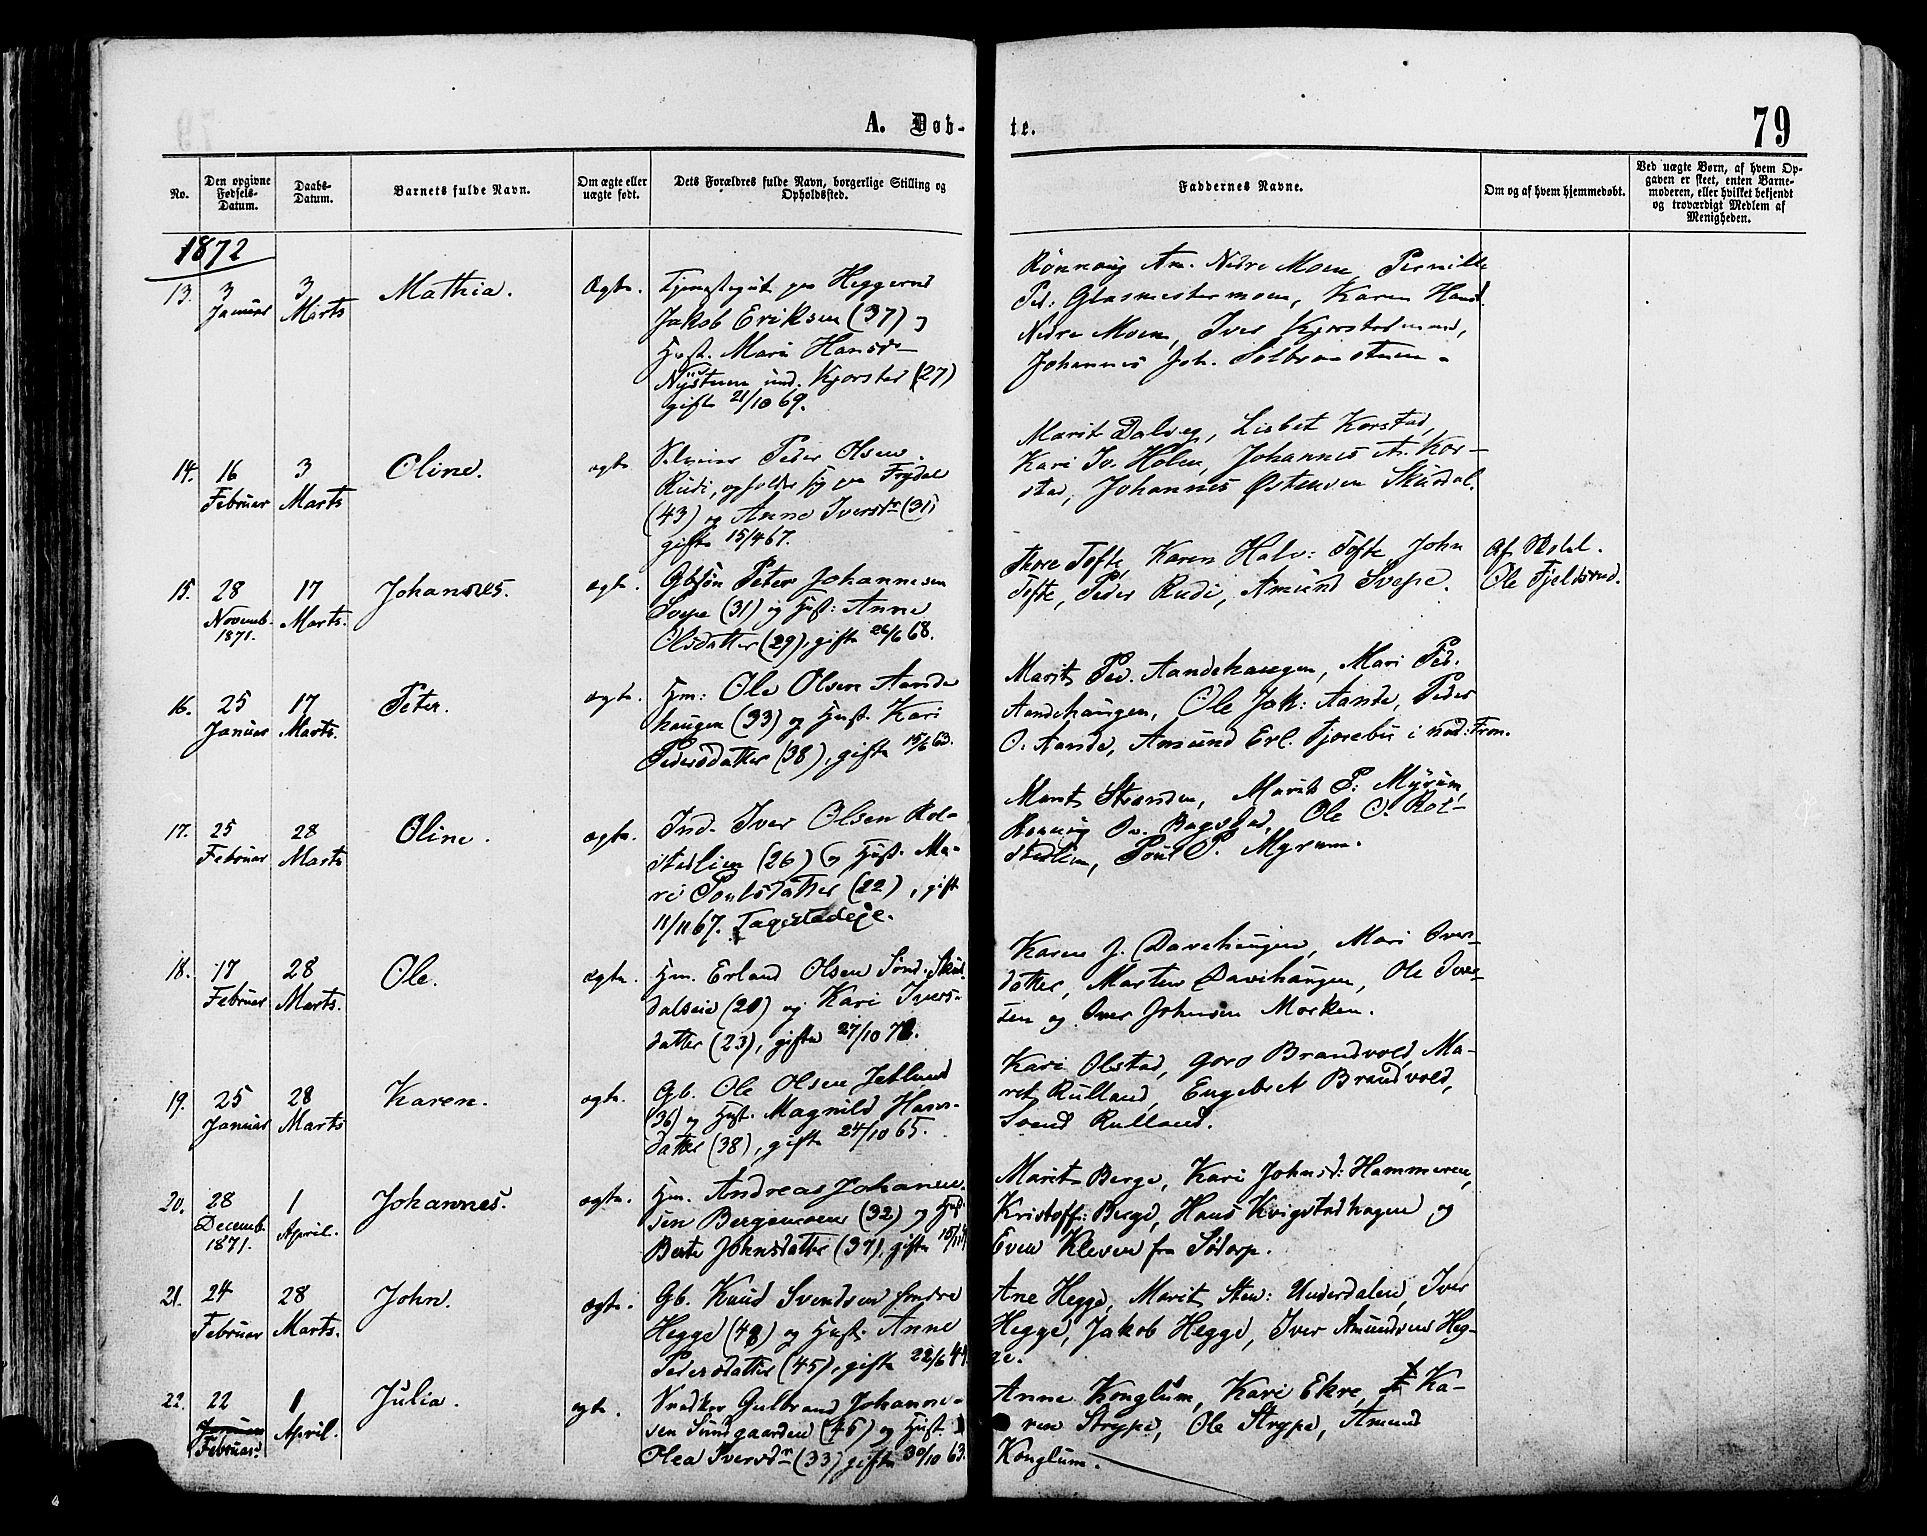 A. Døb-
te.
79
No.
Den opgivne Fødsels-Datum.
Daabs-Datum.
Barnets fulde Navn.
Om ægte eller uægte født.
Dets Forældres fulde Navn, borgerlige Stilling og Opholdssted.
Faddernes Navne.
Om og af hvem hjemmedøbt.
Ved uægte Børn, af hvem Op-
gaven er skeet, enten Barne-
moderen, eller hvilket bekjendt
og troværdigt Medlem af
Menigheden.
1872
13. 3 Januar
3 Marts
Mathia.
Ægte.
Heggerud
Jakob Eriksen (37) og
Hust. Mari Hansdr
Nystuen und. Kjorstad (27)
gifte 21/10 69.
Rønnaug Am. Nedre Moen, Pernille
Ped: Glasmestermoen, Karen Hansd.
Nedre Moen, Iver
Johannes Joh.
14. 16 Februar
3 Marts
Oline.
ægte
Peder Olsen
Rudi, opholder sig paa Frydal
(43) og Anne Iversdr (31)
gifte 15/4 67.
Marit Dalveg, Lisbet Korstad,
Kari Iv. Holen, Johannes A. Kor-
stad, Johannes Østensen Skurdal.
15. 28 Novemb. 1871.
17 Marts.
Johannes.
ægte.
Gbsøn Peter Johannesen
Svepe (31) og Hust: Anne
Olsdatter (29), gifte 26/6 68.
Thore Tofte, Karen Halv: Tofte, John
Tofte, Peder Rudi, Amund Svepe.
Af
Ole Fjeldsrud.
16. 25 Januar
17 Marts.
Peter.
ægte.
Hm: Ole Olsen Aande
haugen (33) og Hust. Kari
Pedersdatter (38), gifte 15/6 63.
Marit Ped. Aandehaugen, Mari Ped.
Aandehaugen, Ole Jak: Aande, Peder
O. Aande, Amund Erl. i Nord: Fron.
17. 25 Februar
28 Marts
Oline.
ægte.
Ind. Iver Olsen Rol-
stadlien (26) og Hust. Ma-
ri Poulsdatter (22), gift
11/11 67. Tagestadeje.
Marit Stranden, Marit P: Myrum,
Rønnaug Ov. Bagstad, Ole O. Rol-
stadlien, Poul P. Myrum.
18. 17 Februar
28 Marts.
Ole.
ægte.
Hm. Erland Olsen Sønd. Skur
dalseie (20) og Kari Ivers-
datter (23), gifte 27/10 71.
Karen J. Davehaugen, Mari Ivers-
datter, Marten Davehaugen, Ole Iver-
sen og Iver Johnsen Morken.
19. 25 Januar
28 Marts
Karen.
ægte.
Gb. Ole Olsen Jetlund
(36) og Hust. Magnild Hans-
datter (38), gifte 24/10 65.
Kari Olstad, Goro Brandvold, Ma-
rit Rulland, Engebret Brandvold,
Svend Rulland.
20. 28 Decemb. 1871.
1 April.
Johannes.
ægte.
Hm. Andreas Johanne-
sen Bergemoen (32) og Hust
Berte Johnsdatter (37), gifte
Marit Berge, Kari Johnsd: Hammeren,
Kristoff: Berge, Hans Kvigstadhagen og
Even Kleven fra Sødorp.
21. 24 Februar
28 Marts.
John.
ægte.
Gb. Knud Svendsen søndre
Hegge (48) og Hust: Anne
Pedersdatter (45), gifte 22/6 44.
Ane Hegge, Marit Sten: Underdalen, Iver
Hegge, Jakob Hegge, Iver Amundsen Heg-
ge.
22. 22 Januar Februar.
1 April.
Julia.
ægte.
Snedker Gulbrand Johanne-
sen Sundgaarden (46) og Hust:
Olea Iversdr (33) gifte 30/10 63.
Anne Konglum, Kari Ekre, Ka-
ren Strype, Ole Strype, Amund
Konglum.